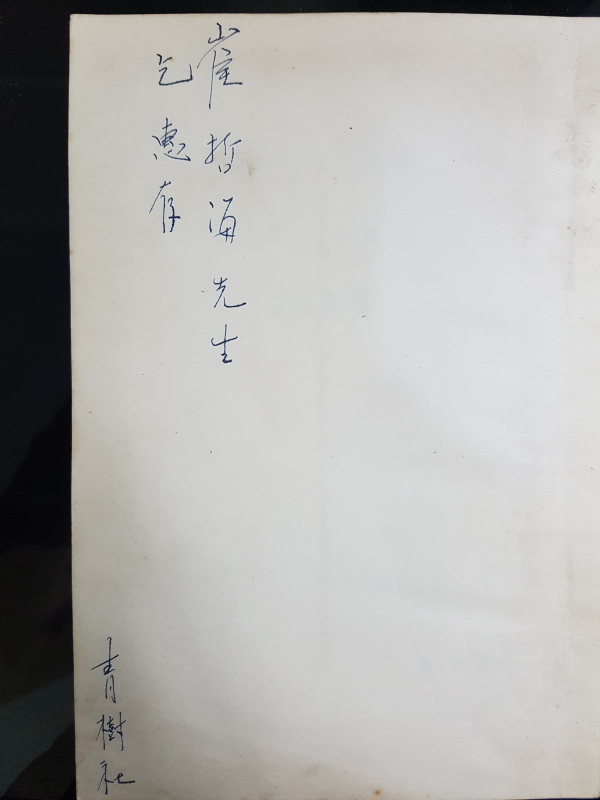 崔哲海先生
乞惠存
青樹社